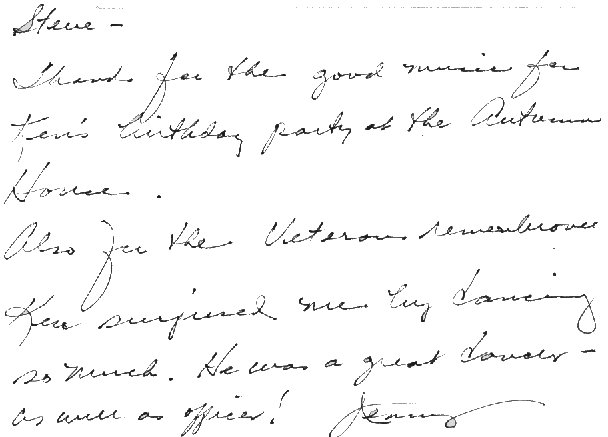 Steve -
Thanks for the good music for
Ken's birthday party at the Autumn
House.
Also for the Veterans remembrance
Ken surprised me by dancing
so much. He was a great dancer -
as well as officer! Jenny